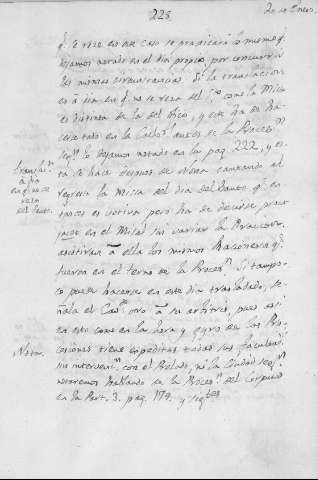 225
20 de Enero.
q.e rece en este caso se practicará lo mismo q.e
dejamos notado en el dia propio, por concurrir
las mismas circunstancias. Si la translacion
es á dia en q.e no se reza del S.to como la Misa
es distinta de la del Oficio, y esta ha de ha-
cerse toda en la Cathed.l antes de la Proces.n
seg.n lo dejamos notado en la pag. 222, y es-
to se hace despues de Nona cantando al
regreso la Missa del dia del Santo q.e en-
tonces es votiva pero ha de decirse prout
jacet en el Misal sin variar la
asistiran á ella los mismos Racioneros q.e
fueron en el terno de la Proces.n Si tampo-
co puede hacerse en este dia trasladado, se-
ñala el Cav.do otro á su arbitrio, pues así
en esto como en la hora y giro de las Pro-
cesiones tiene expeditas todas sus facultad.s
sin intervenc.n con el Prelado, ni la Ciudad seg.n
notaremos hablando de la Proces.n del Corpus
en la Part. 3. pag. 179. y sig.tes
Translac.n
á dia
en q.e no se
reza
del Santo.
Nota.